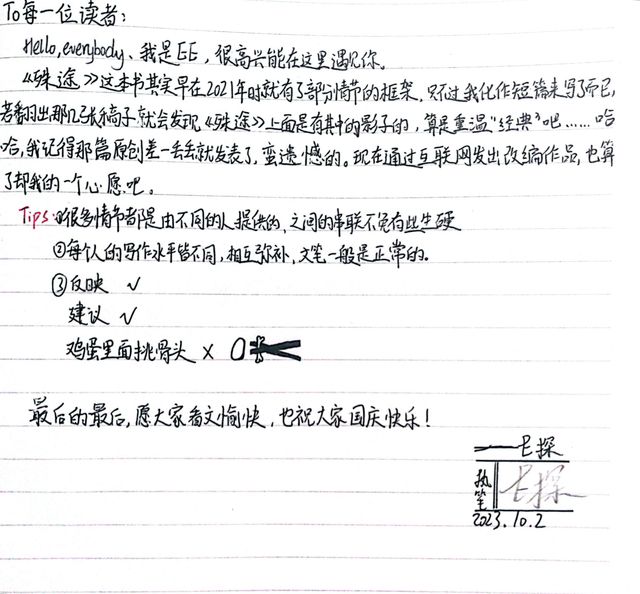 To每一位读者:
Hello,everybody、我是EE，很高兴能在这里遇见你。
《殊途》这本书其实早在2021年时就有了部分情节的框架，只不过我化作短篇来写了而已，
若翻出那几张稿子就会发现《殊途》上面是有其中的影子的，算是重温“经典”吧……哈
哈，我记得那篇原创差一丢丢就发表了，蛮遗憾的。现在通过互联网发出改编作品，也算
了却我的一个心愿吧。
Tips:①很多情节都是由不同的人提供的，之间的串联不免有些生硬
②每个人的写作水平皆不同，相互弥补，文笔一般是正常的。
③反映 √
建议 √
鸡蛋里面挑骨头 ×
最后的最后，愿大家看文愉快，也祝大家国庆快乐！
——E探
执笔 E探
2023.10.2